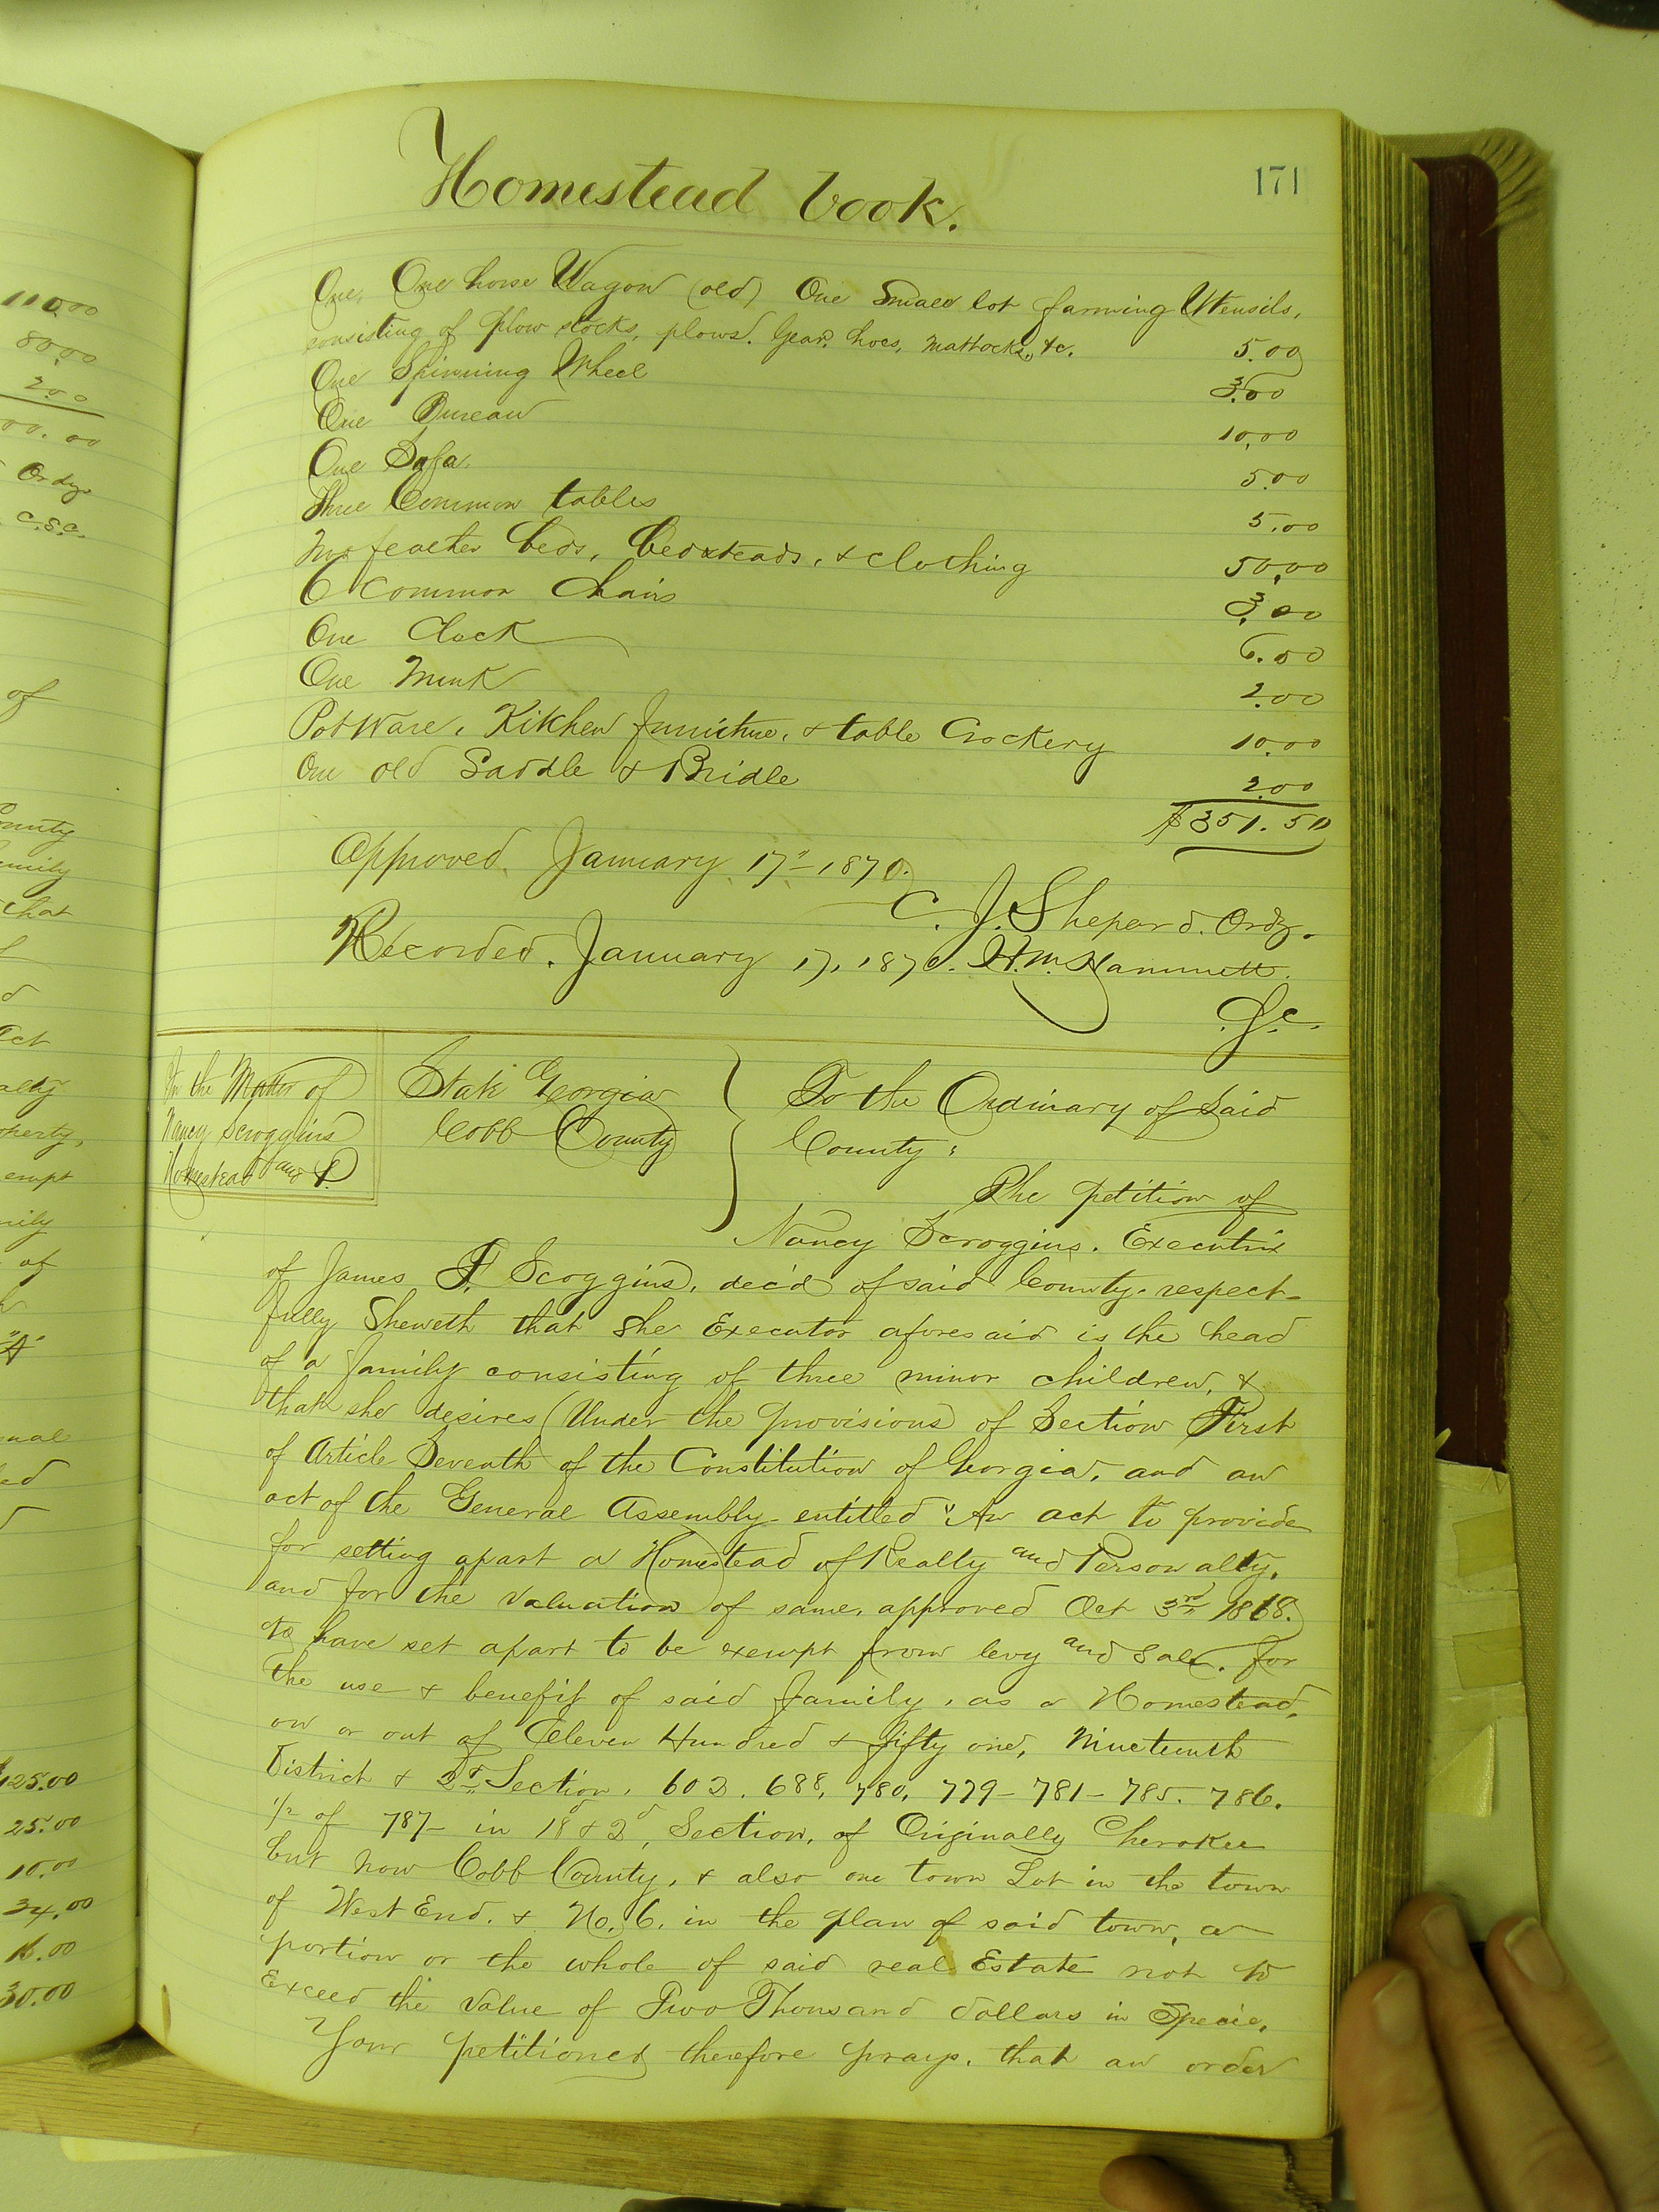 Homestead book.
171
One, One horse Wagon (old) One Small lot farming Utensils,
consisting of plow stocks, plows. Gear, hoes, mattocks, &c. 5.00
One Spinning Wheel 3.00
One Bureau 10.00
One Sofa. 5.00
Three Common tables 5.00
Two feather beds, bedsteads, & clothing 50.00
6 Common Chairs 3.00
One Clock 6.00
One Trunk 2.00
Pot Ware, Kitchen furniture, & table Crockery 10.00
One old Saddle & Bridle 2.00
$351.50
Approved. January 17" 1870.
C. J. Sheperd. Ordy.
Recorded. January 17, 1870. H.M. Hammett.
In the Matter of
Nancy Scroggins
Homestead and P.
State Georgia
Cobb County
To the Ordinary of Said
County:
The petition of
Nancy Scroggins. Executrix
of James F. Scoggins, dec'd of said County. respect-
fully Sheweth that she Executor aforesaid is the head
of a family consisting of three minor children, &
that she desires (Under the provisions) of Section First
of Article Seventh of the Constitution of Georgia, and an
act of the General Assembly entitled "An act to provide
for setting apart a Homestead of Realty and Personalty,
and for the valuation of same, approved Oct 3rd 1868.)
to have set apart to be exempt from levy and Sale. for
the use & benefit of said family, as a Homestead,
on or out of Eleven Hundred & fifty one, Nineteenth
District & 2d Section, 603. 688, 780, 779 - 781 - 785. 786.
1/2 of 787 - in 18 & 2d, Section, of Originally Cherokee
but now Cobb County, & also one town Lot in the town
of West End. & No. 6. in the plan of said town, a
portion or the whole of said real Estate not to
Exceed the value of Two Thousand dollars in Specie.
Your petitioner therefore prays. that an order
110.00
80.00
2.00
00.00
Ordy.
C.S.C.
of
County
family
that
d
act
alty
operty,
empt
mily
of
"A"
nal
ed
$125.00
25.00
10.00
34.00
16.00
30.00